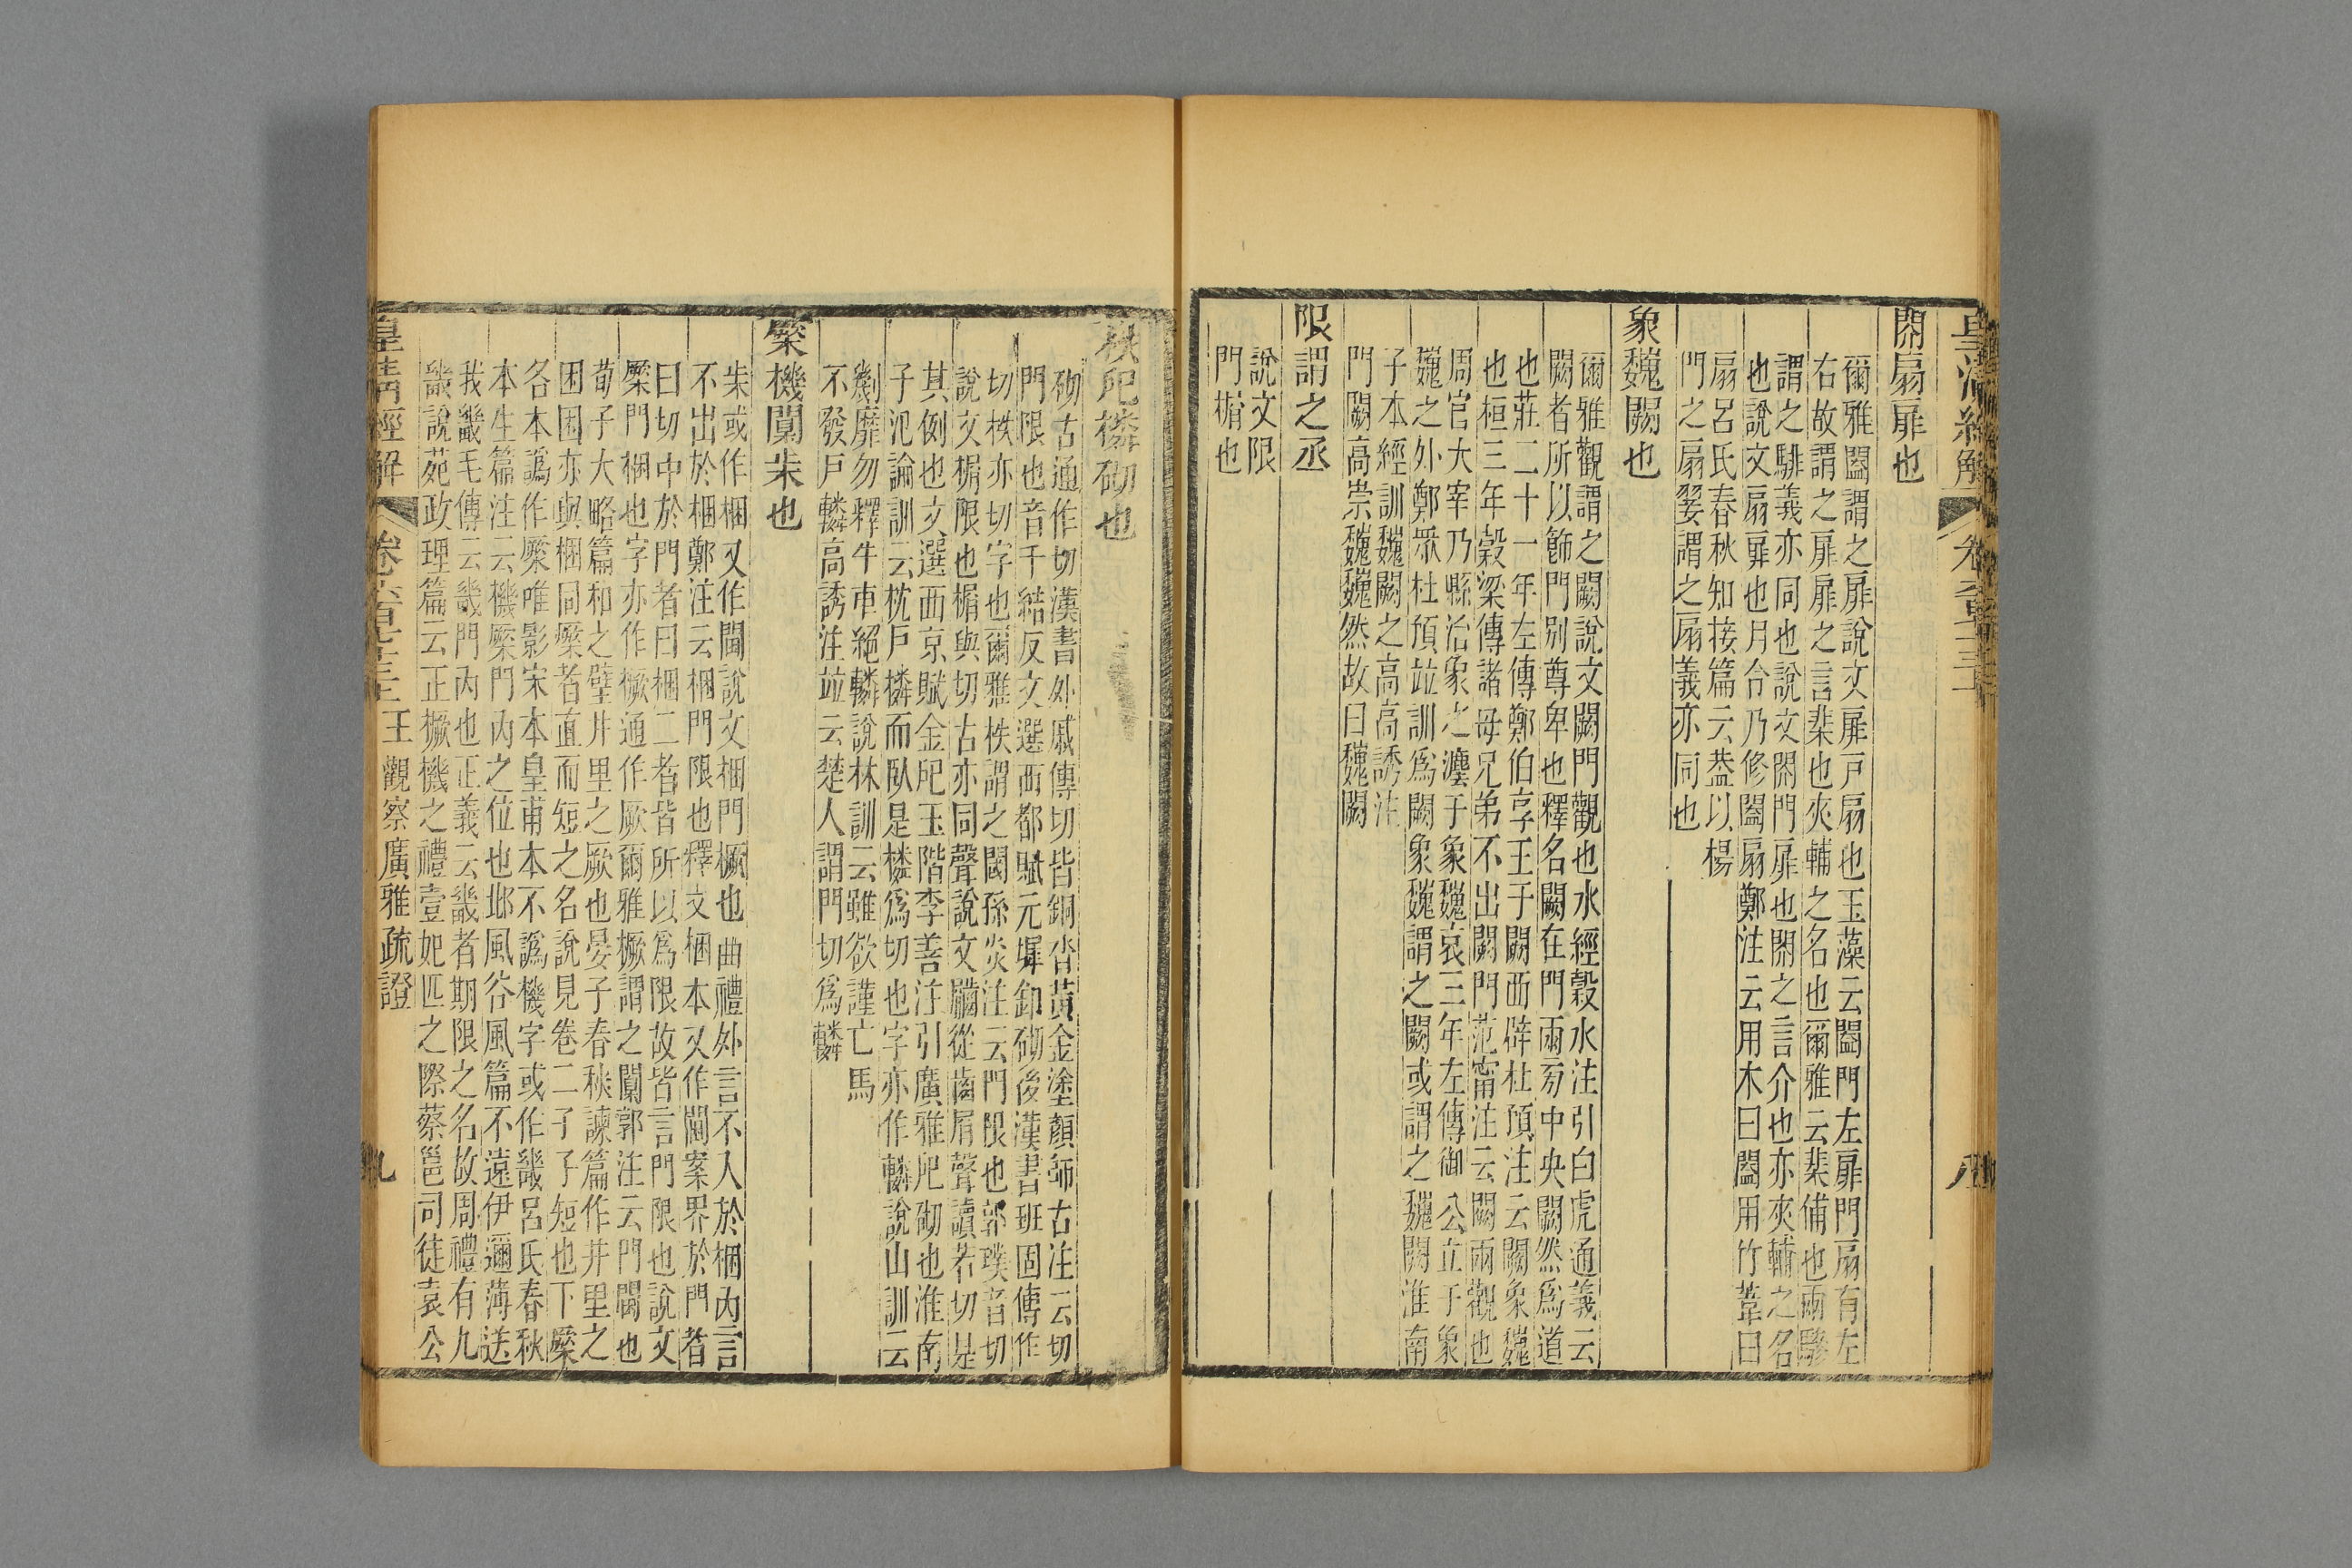 皇清經解 卷六百七十三
閉扇扉也
爾雅闔謂之扉說文扉戸扇也玉藻云闔門左扉門扇有左
右故謂之扉扉之言棐也夾輔之名也爾雅云棐俌也兩驂
謂之騑義亦同也說文閉門扉也閉之言介也亦夾輔之名
也說文扇扉也月令乃修闔扇鄭注云用木曰闔用竹葦曰
扇呂氏春秋知接篇云葢以楊
門之扇翣謂之扇義亦同也
象魏闕也
爾雅觀謂之闕說文闕門觀也水經穀水注引白虎通義云
闕者所以飾門別尊卑也釋名闕在門兩旁中央闕然爲道
也莊二十一年左傳鄭伯享王于闕西辟杜預注云闕象魏
也桓三年穀梁傳諸母兄弟不出闕門范甯注云闕兩觀也
周官大宰乃縣治象之灋于象魏哀三年左傳御公立于象
魏之外鄭眾杜預竝訓爲闕象魏謂之闕或謂之魏闕淮南
子本經訓魏闕之高高誘注
門闕高崇魏魏然故曰魏闕
限謂之丞
說文限
門榍也
柣戺橉砌也
砌古通作切漢書外戚傳切皆銅沓黃金塗顏師古注云切
門限也音千結反文選西都賦元墀釦砌後漢書班固傳作
切柣亦切字也爾雅柣謂之閾孫炎注云門限也郭璞音切
說文榍限也榍與切古亦同聲說文䶛從齒屑聲讀若切是
其例也文選西京賦金戺玉階李善注引廣雅戺砌也淮南
子氾論訓云枕戸橉而臥是橉爲切也字亦作轔說山訓云
劙靡勿釋牛車絕轔說林訓云雖欲謹亡馬
不發戸轔高誘注竝云楚人謂門切爲轔
橜機闑朱也
朱或作梱又作閫說文梱門橛也曲禮外言不入於梱內言
不出於梱鄭注云梱門限也釋文梱本又作閫案界於門者
曰切中於門者曰梱二者皆所以爲限故皆言門限也說文
橜門梱也字亦作橛通作厥爾雅橛謂之闑郭注云門閫也
荀子大略篇和之璧井里之厥也晏子春秋諫篇作井里之
困困亦與梱同橜者直而短之名說見卷二孑孓短也下橜
各本譌作檿唯影宋本皇甫本不譌機字或作畿呂氏春秋
本生篇注云機橜門內之位也邶風谷風篇不遠伊邇薄送
我畿毛傳云畿門內也正義云畿者期限之名故周禮有九
畿說苑政理篇云正橛機之禮壹妃匹之際蔡邕司徒袁公
皇清經解 卷六百七十三 王觀察廣雅疏證 九